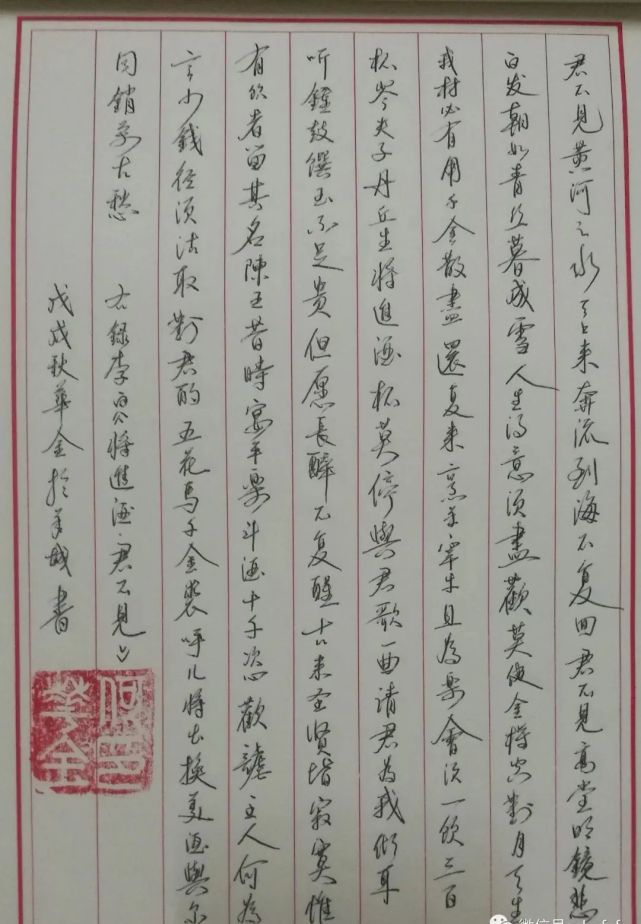 君不见黄河之水天上来奔流到海不复回君不见高堂明镜悲
白发朝如青丝暮成雪人生得意须盡歡莫使金樽空對月天生
我材必有用千金散盡還复来烹羊宰牛且為樂會须一饮三百
杯岑夫子丹丘生将進酒杯莫停與君歌一曲请君為我倾耳
听鐘鼓饌玉不足贵但愿長醉不复醒古来圣贤皆寂寞惟
有饮者留其名陳王昔時宴平樂斗酒十千恣歡謔主人何為
言少錢径须沽取對君酌五花馬千金裘呼儿将出換美酒與尔
同銷万古愁 右録李白将進酒君不见
戊戌秋華金於羊城書